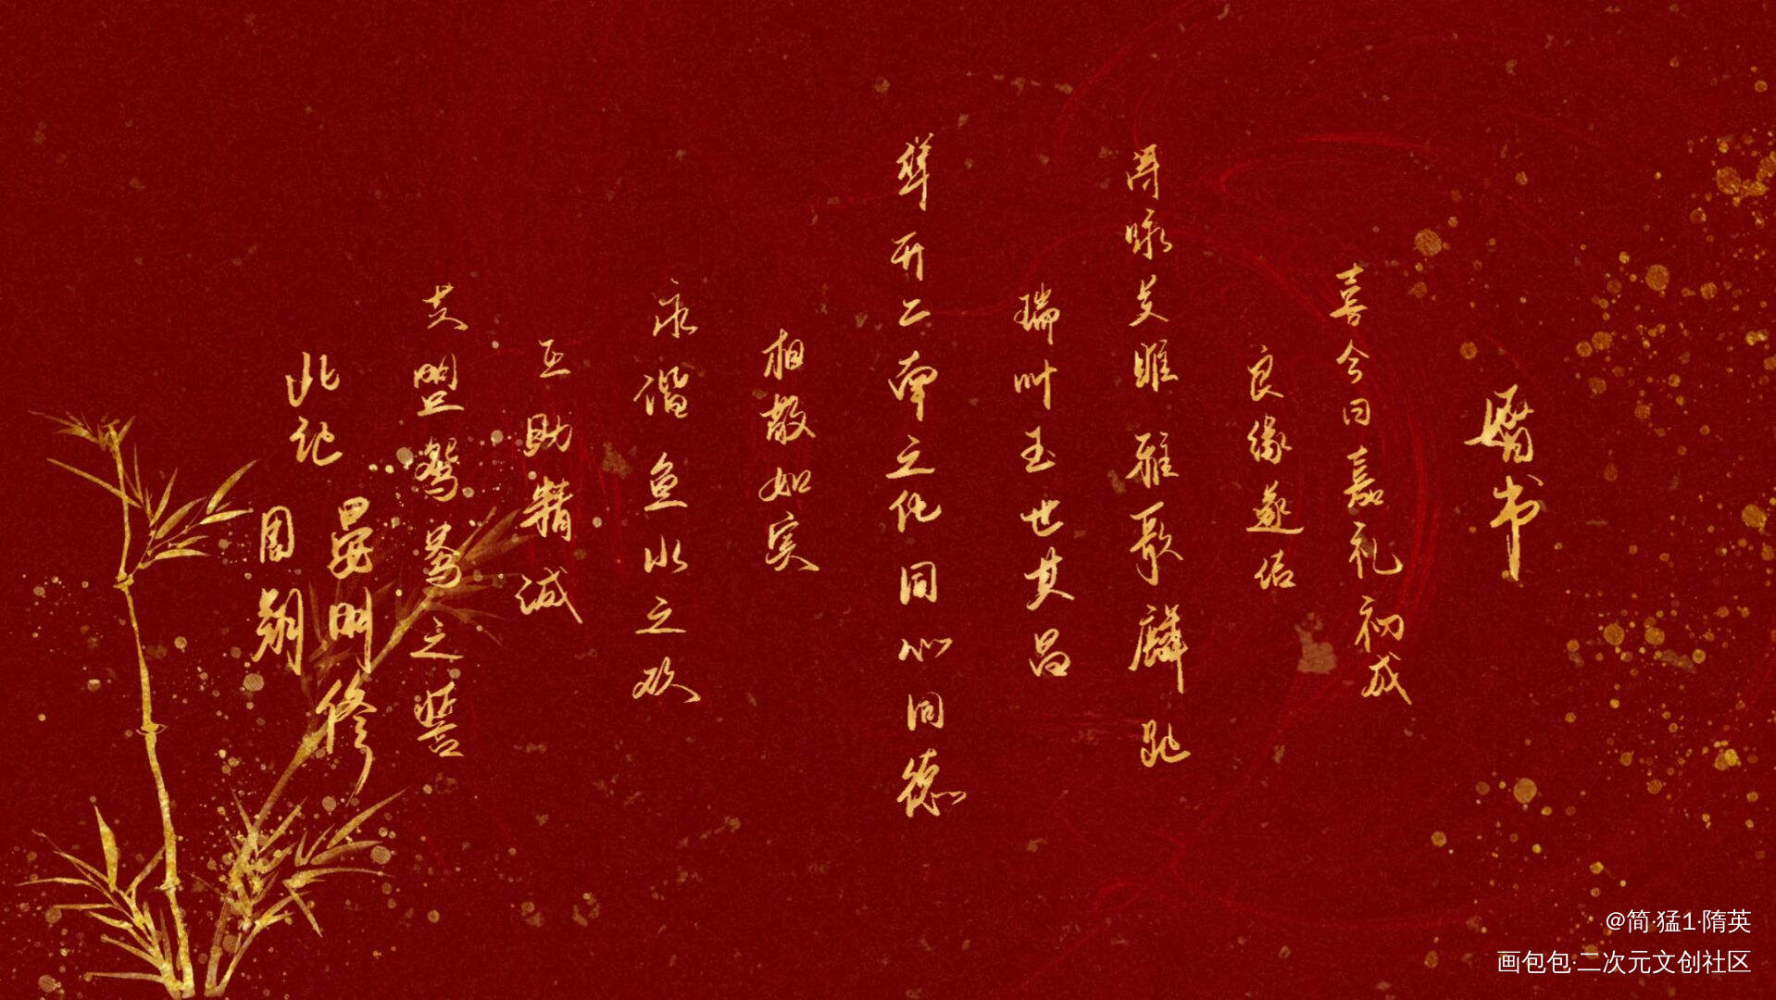 婚书
喜今日嘉礼初成
良缘遂结
诗咏关雎雅歌麟趾
瑞叶五世其昌
祥开二南之化同心同德
相敬如宾
永谐鱼水之欢
互助精诚
共盟鸳鸯之誓
此记
晏明修
周朔
@简·猛1·隋英
画包包·二次元文创社区